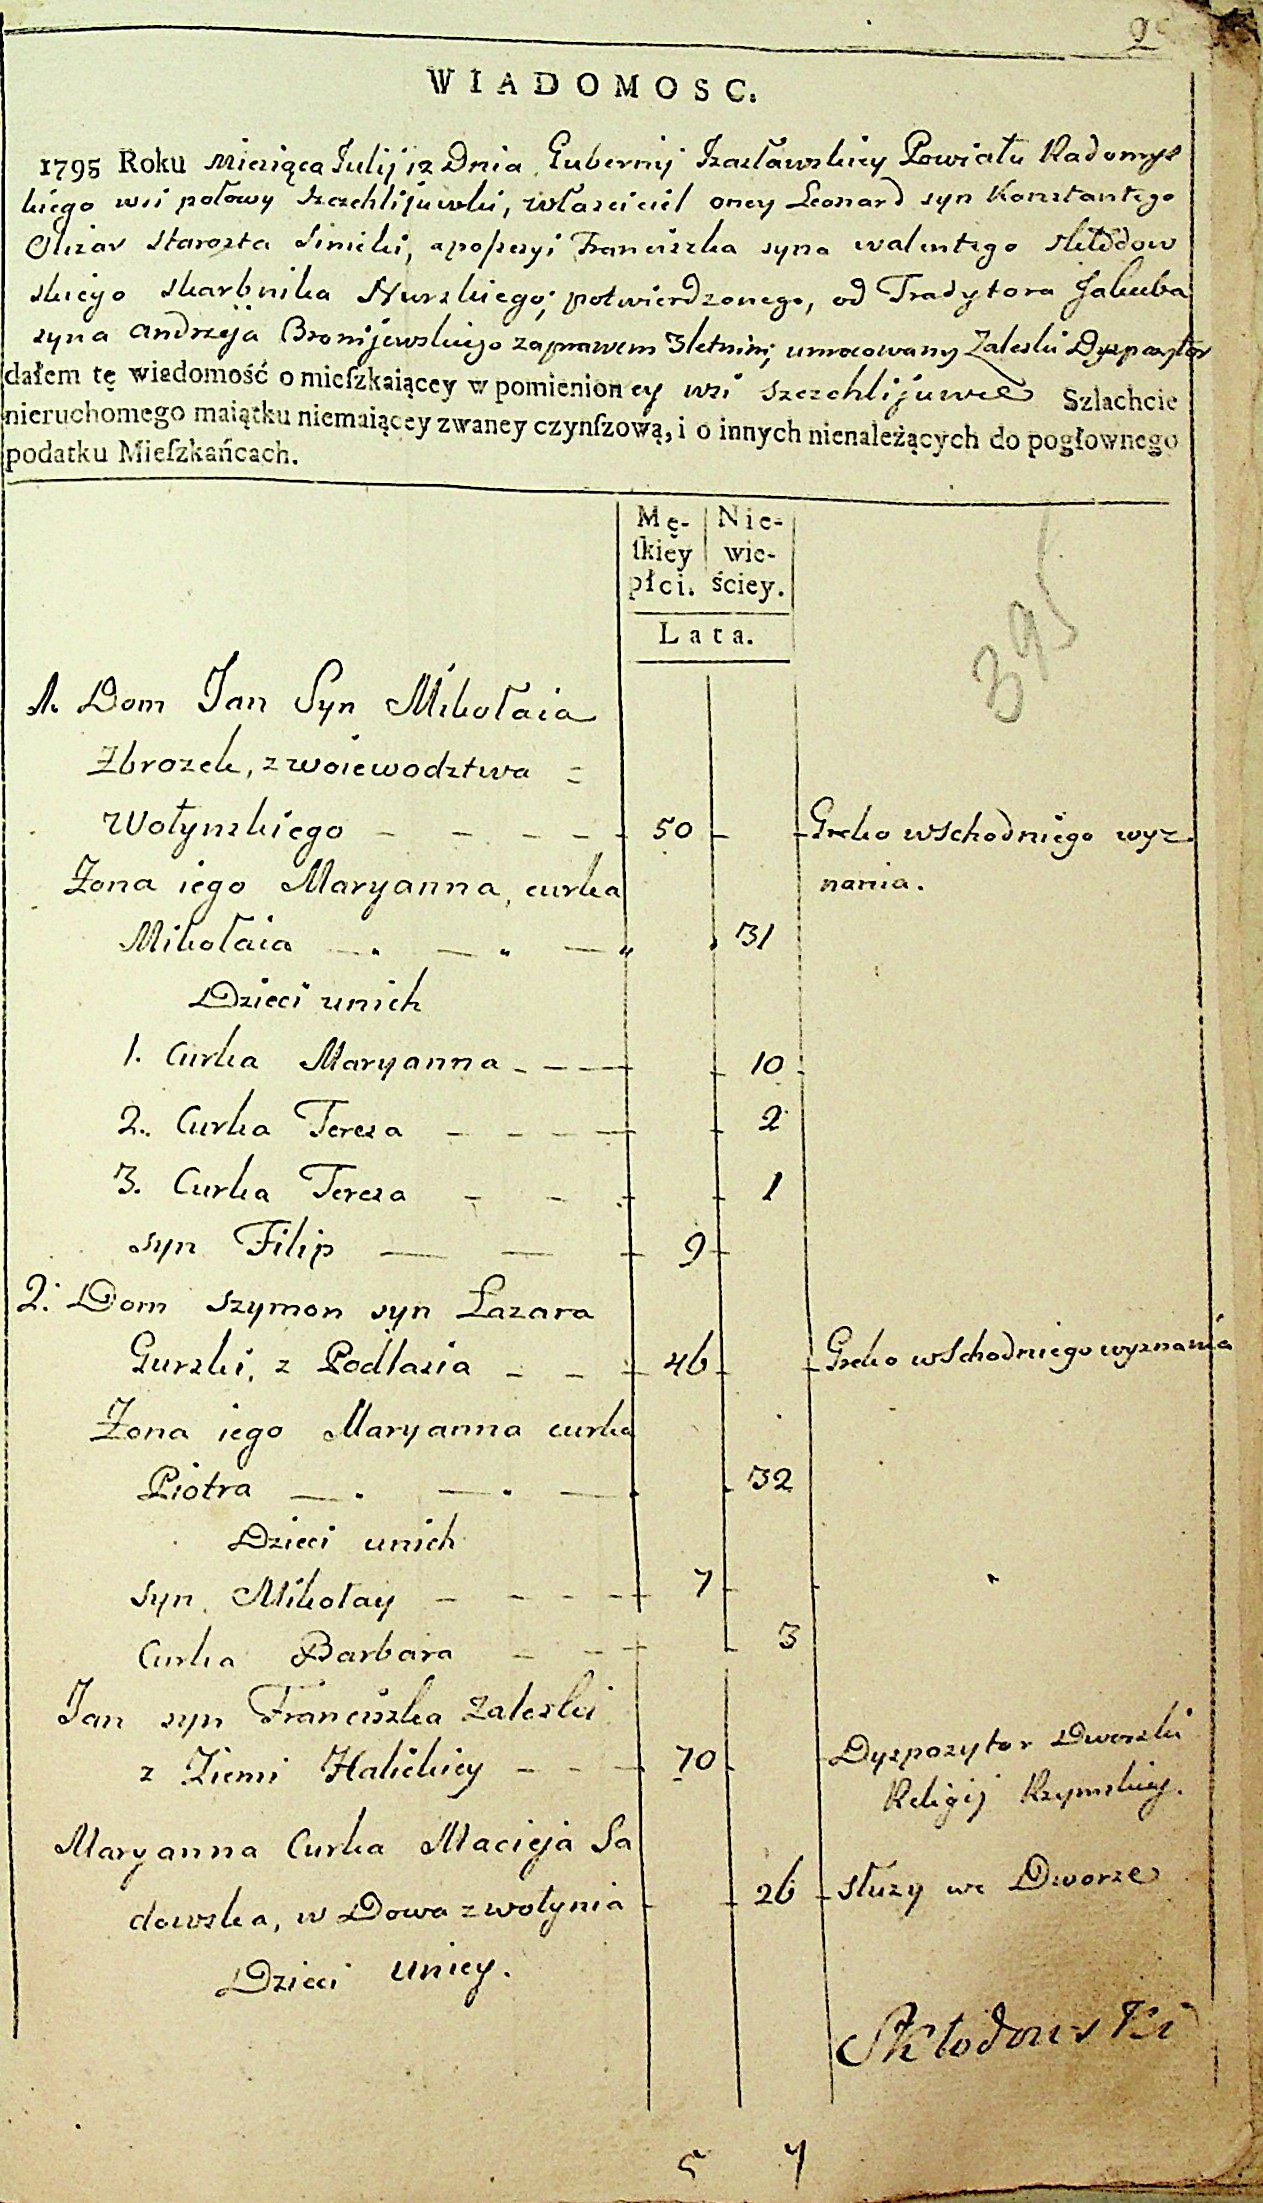 WIADOMOSC.
1795 Roku Miesiąca Julij 12 Dnia Gubernij Izasławskiey Powiatu Radomys
kiego wsi połowy Szczehlijuwki, właściciel oney Leonard syn Konstantego
Olizar Starosta, aposesyi Franciszka syna walentego Skłodow
skiego skarbnika Nurskiego, potwierdzonego, od Tradytora Jakuba
syna Andrzeja Bronijewskiego zaprawem 3letnim, umocowany Zaleski Dyspozytor
dałem tę wiadomość o mieſzkaiącey w pomienioney wsi Szczehlijuwce Szlachcie
nieruchomego maiątku niemaiącey zwaney czynſzową, i o innych nienależących do pogłownego
podatku Mieſzkańcach.
Mę- Nie-
ſkiey wie-
płci. ściey.
Lata.
395
1. Dom Jan Syn Mikołaia
Zbrozek, z woiewodztwa =
Wołynskiego - - - - - 50 - - Greko wschodniego wyz-
Zona iego Maryanna, curka nania.
Mikołaia 31
Dzieci unich
1. Curka Maryanna - - - 10
2. Curka Teresa - - - - 2
3. Curka Teresa - - - 1
syn Filip - - - 9
2. Dom Szymon syn Łazara
Gurski, z Podlasia - - - 46 - - Greko wschodniego wyznania
Zona iego Maryanna curka
Piotra 32
Dzieci unich
Syn Mikołay - - - - 7
Curka Barbara - - - 3
Jan syn Franciszka Zaleski
z Ziemi Halickiey - - - 70 - - Dyspozytor Dworski
Religij Rzymskiey.
Maryanna Curka Macieja Sa
dowska, w Dowa z wołynia - - 26 - służy we Dworze
Dzieci uniey.
Skłodowski
5 7